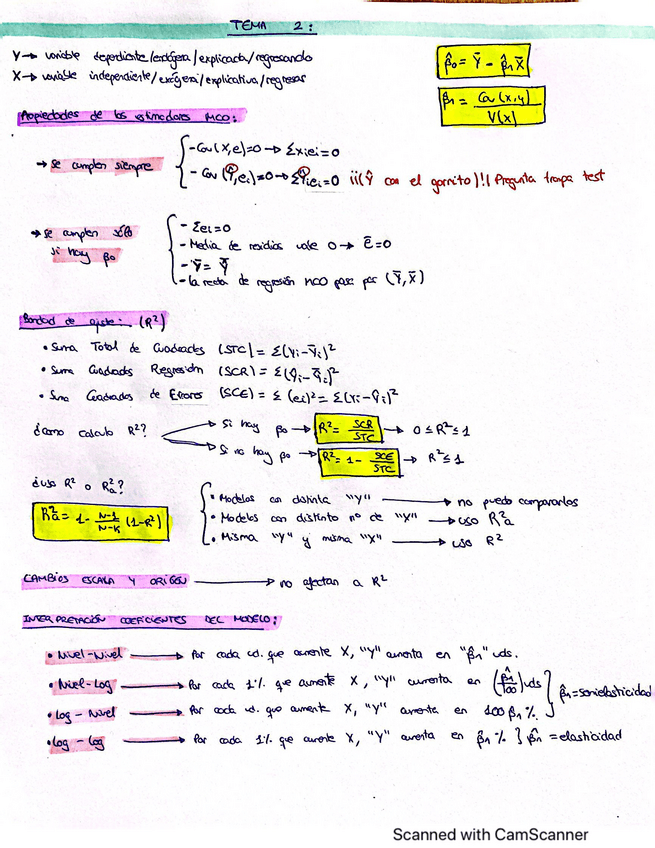 TEMA 2:
Y → variable dependiente/endógena/explicada/regresando
X → variable independiente/exógena/explicativa/regresor
β̂₀ = Ȳ - β̂₁X̄
β̂₁ = Cov(x,y) / V(x)
Propiedades de los estimadores MCO:
→ Se cumplen siempre
- Cov(X,e)=0 → Σxiei=0
- Cov(Ŷ,ei)=0 → ΣŶiei=0 ¡¡(Ŷ con el gorrito)!! Pregunta trampa test
→ Se cumplen sólo si hay β₀
- Σei=0
- Media de residuos vale 0 → ē=0
- Ȳ = Ŷ̄
- La recta de regresión MCO pasa por (Ȳ,X̄)
Bondad de ajuste: (R²)
• Suma Total de Cuadrados (STC) = Σ(Yi-Ȳi)²
• Suma Cuadrados Regresión (SCR) = Σ(Ŷi-Ŷ̄i)²
• Suma Cuadrados de Errores (SCE) = Σ(ei)² = Σ(Yi-Ŷi)²
¿Cómo calculo R²?
→ Si hay β₀ → R² = SCR/STC → 0 ≤ R² ≤ 1
→ Si no hay β₀ → R² = 1 - SCE/STC → R² ≤ 1
¿Uso R² o R²a?
R²a = 1 - N-1/N-K (1-R²)
• Modelos con distinta "Y" → no puedo compararlos
• Modelos con distinto nº de "X" → uso R²a
• Misma "Y" y misma "X" → uso R²
CAMBIOS ESCALA Y ORIGEN → no afectan a R²
INTERPRETACIÓN COEFICIENTES DEL MODELO:
• Nivel-Nivel → Por cada ud. que aumente X, "Y" aumenta en "β̂₁" uds.
• Nivel-Log → Por cada 1% que aumente X, "Y" aumenta en (β̂₁/100) uds
• Log-Nivel → Por cada ud. que aumente X, "Y" aumenta en 100β̂₁%.
} β̂₁=semielasticidad
• Log-Log → Por cada 1% que aumente X, "Y" aumenta en β̂₁% } β̂₁ = elasticidad
Scanned with CamScanner